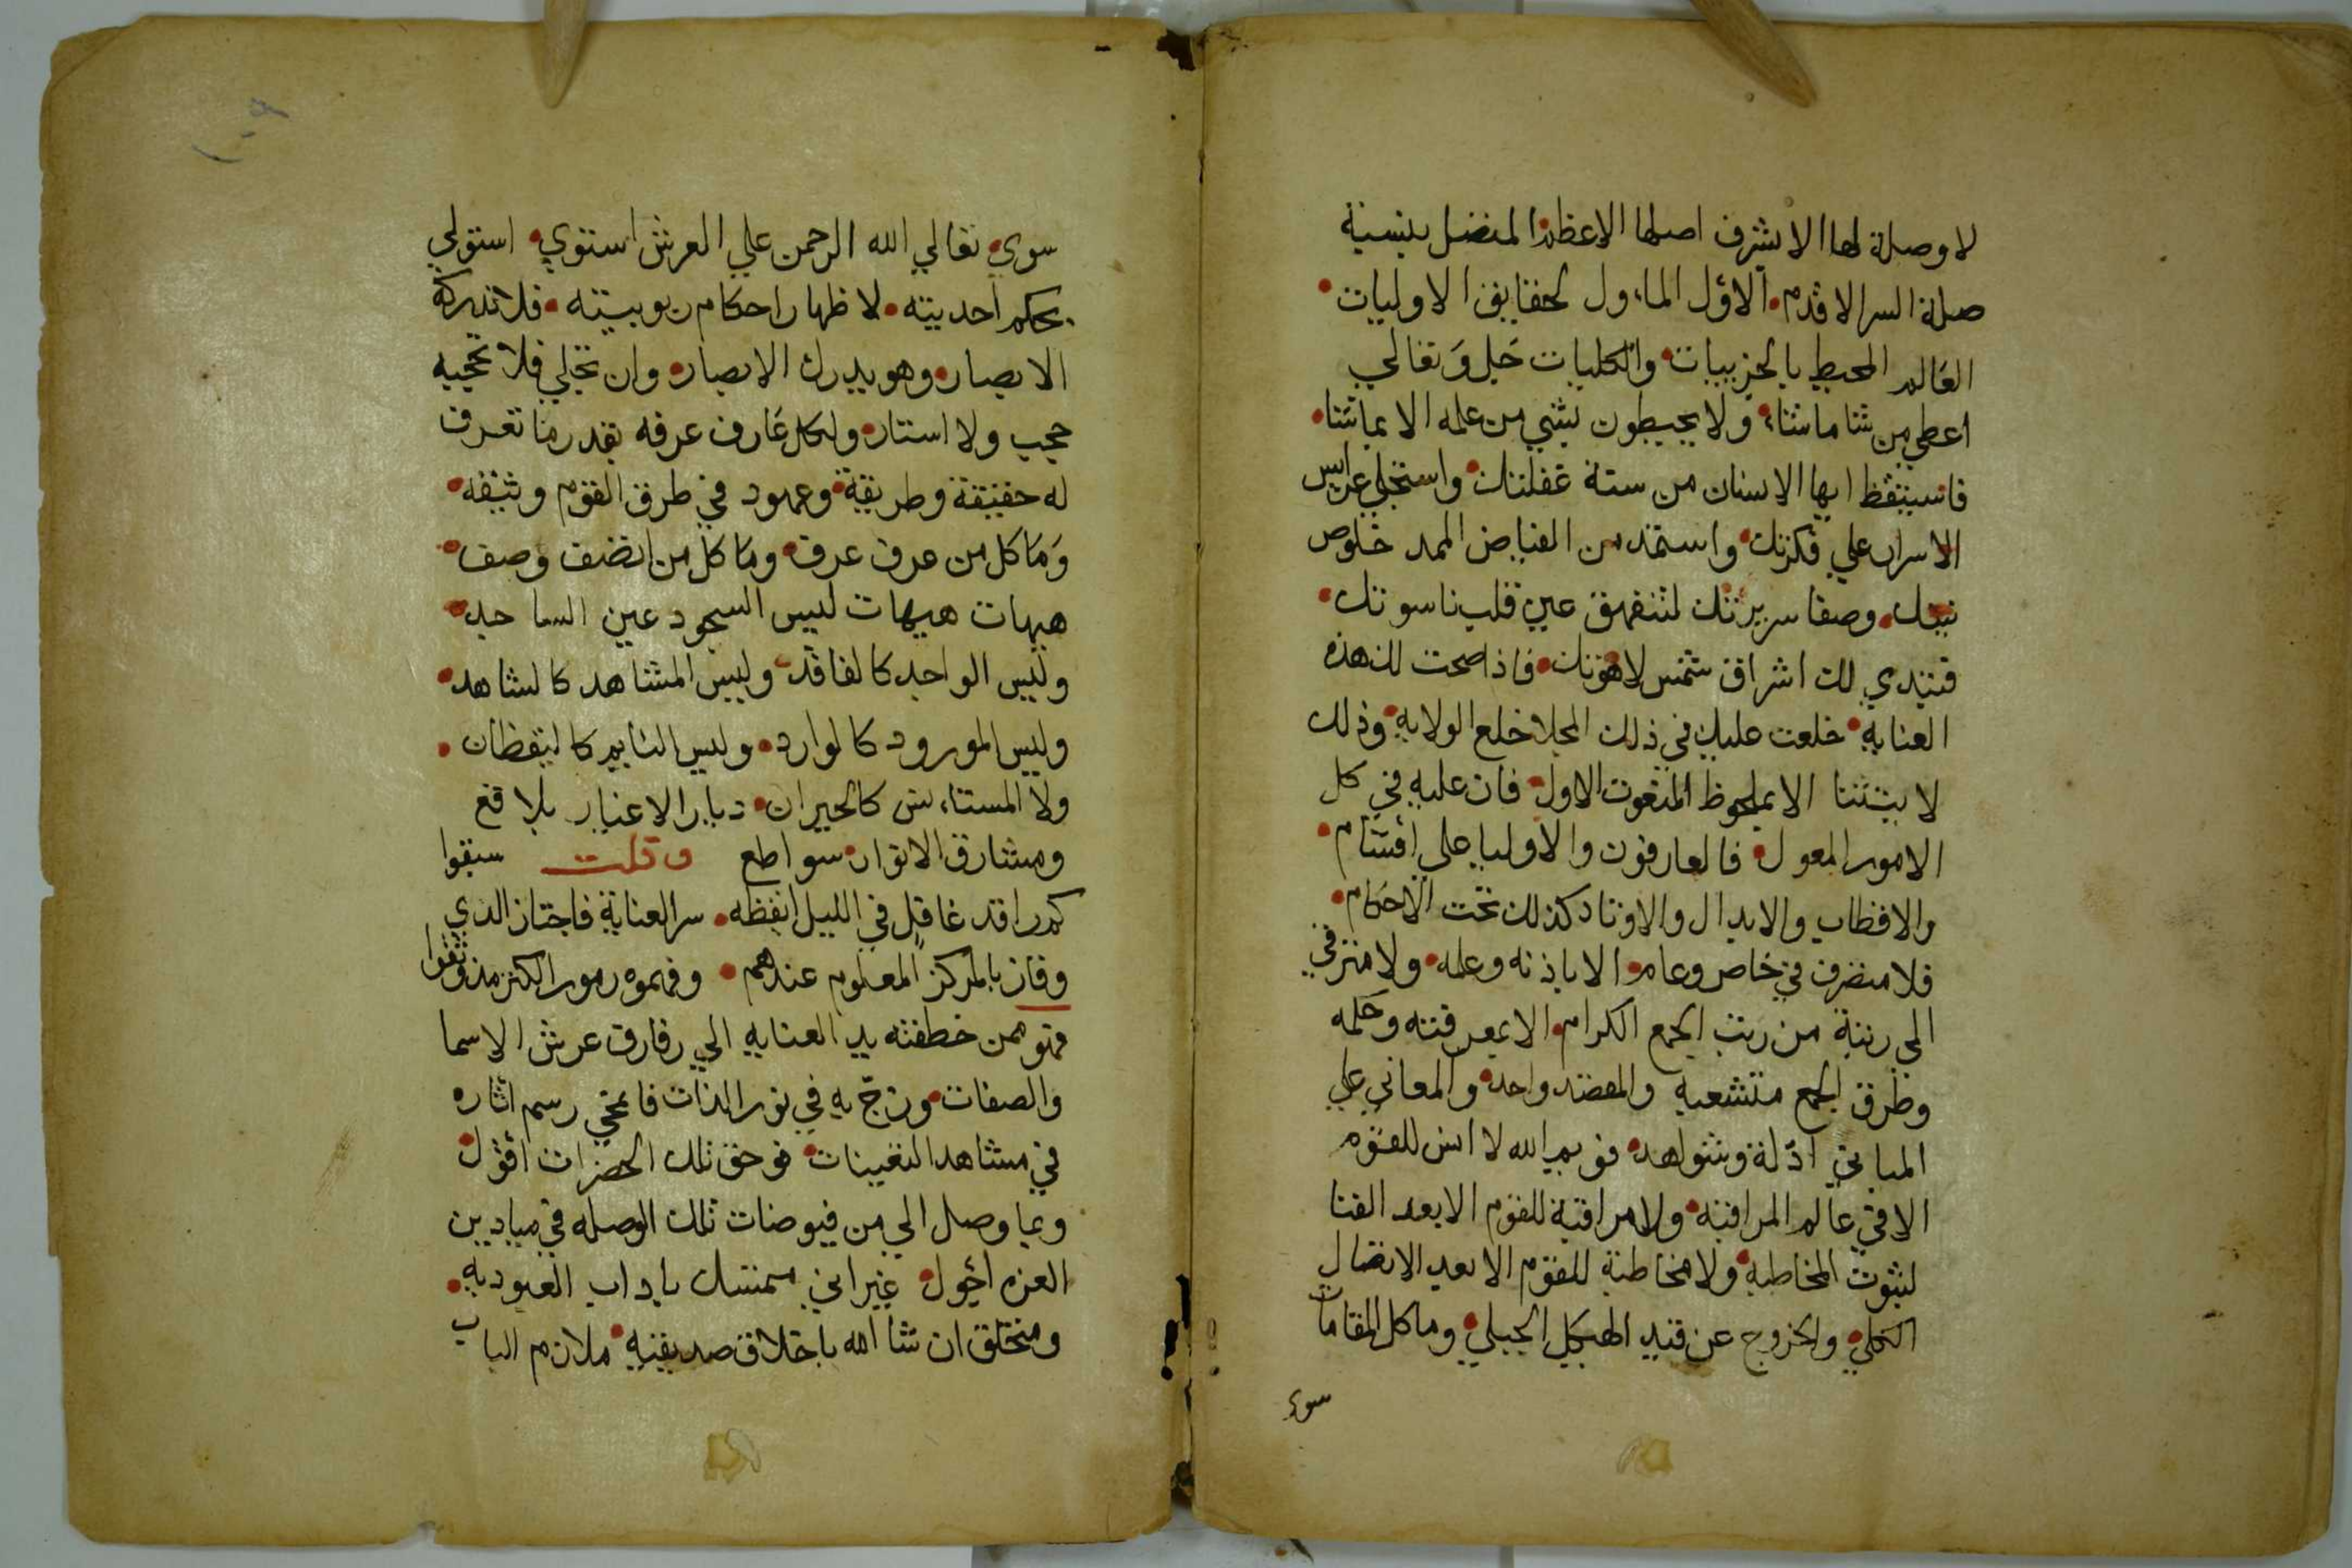 لا وصلة لها الا بشرف اصلها الاعظم المتصل بنسبة
صلة السر الاقدم الاول الماءول لحقايق الاوليات
العالم المحيط بالجزييات والكليات جل وتعالي
اعطي من شا ماشاء ولا يحيطون بشي من علمه الا بماشا
فاستيقظ ايها الانسان من سنة غفلتك واستجلي عرايس
الاسرار علي فكرتك واستمد من الفياض الممد خلوص
نيتك وصفا سريرتك لتنفهق عين قلب ناسوتك
فيبتدي لك اشراق شمس لاهوتك فاذا صحت لك هذه
العنايه خلعت عليك في ذلك المجلا خلع الولايه وذلك
لا يتشا الا بملحوظ المنعوت الاول فان عليه في كل
الامور المعول فالعارفون والاوليا علي اقسام
والاقطاب والابدال والاوتاد كذلك تحت الاحكام
فلا متصرف في خاص وعام الا باذنه وعلمه ولا مترقي
الي رتبة من رتب الجمع الكرام الا بمعرفته وحلمه
وطرق الجمع متشعبه والمقصد واحد والمعاني علي
المباني ادلة وشواهد فويم الله لا انس للقوم
الا في عالم المراقبه ولا مراقبة للقوم الا بعد الفنا
لثبوت المخاطبه ولا مخاطبة للقوم الا بعد الاتصال
الكلي والخروج عن قيد الهيكل الجبلي وما كل المقامات
سوي
سوي تعالي الله الرحمن علي العرش استوي استولي
بحكم احديته لاظهار احكام ربوبيته فلا تدركه
الابصار وهو يدرك الابصار وان تجلي فلا تحجبه
حجب ولا استار ولكل عارف عرفه بقدر ما تعرف
له حقيقة وطريقة وعهود في طرق القوم وثيقه
وما كل من عرف عرف وما كل من اتصف وصف
هيهات هيهات ليس السجود عين الساجد
وليس الواجد كالفاقد وليس المشاهد كالشاهد
وليس المورود كالوارد وليس النايم كاليقظان
ولا المستاءنس كالحيران ديار الاغيار بلاقع
ومشارق الانوار سواطع وقلت سبقوا
كم راقد غافل في الليل ايقظه سر العناية فاجتاز الذي
وفاز بالمركز المعلوم عندهم وفهموه رموز الكنز مذ وثقوا
فهو ممن خطفته يد العنايه الي رفارف عرش الاسما
والصفات وزج به في نور الذات فامحي رسم اثاره
في مشاهد التعينات فوحق تلك الحضرات اقول
وبما وصل الي من فيوضات تلك الوصله في ميادين
العزه اجول غير اني متمسك باداب العبوديه
ومتخلق ان شا الله باخلاق صديقيه ملازم الباب